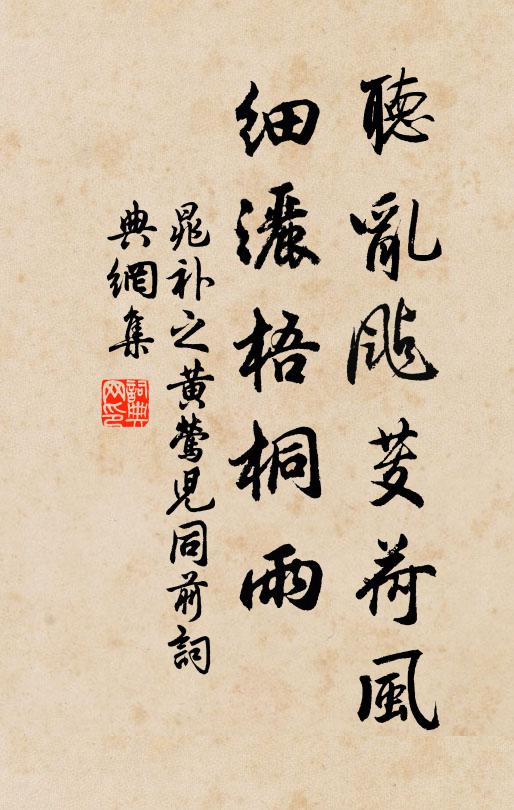 聽亂颭芰荷風
細灑梧桐雨
晁補之黃鶯兒同前詞
典網集
詞典網印